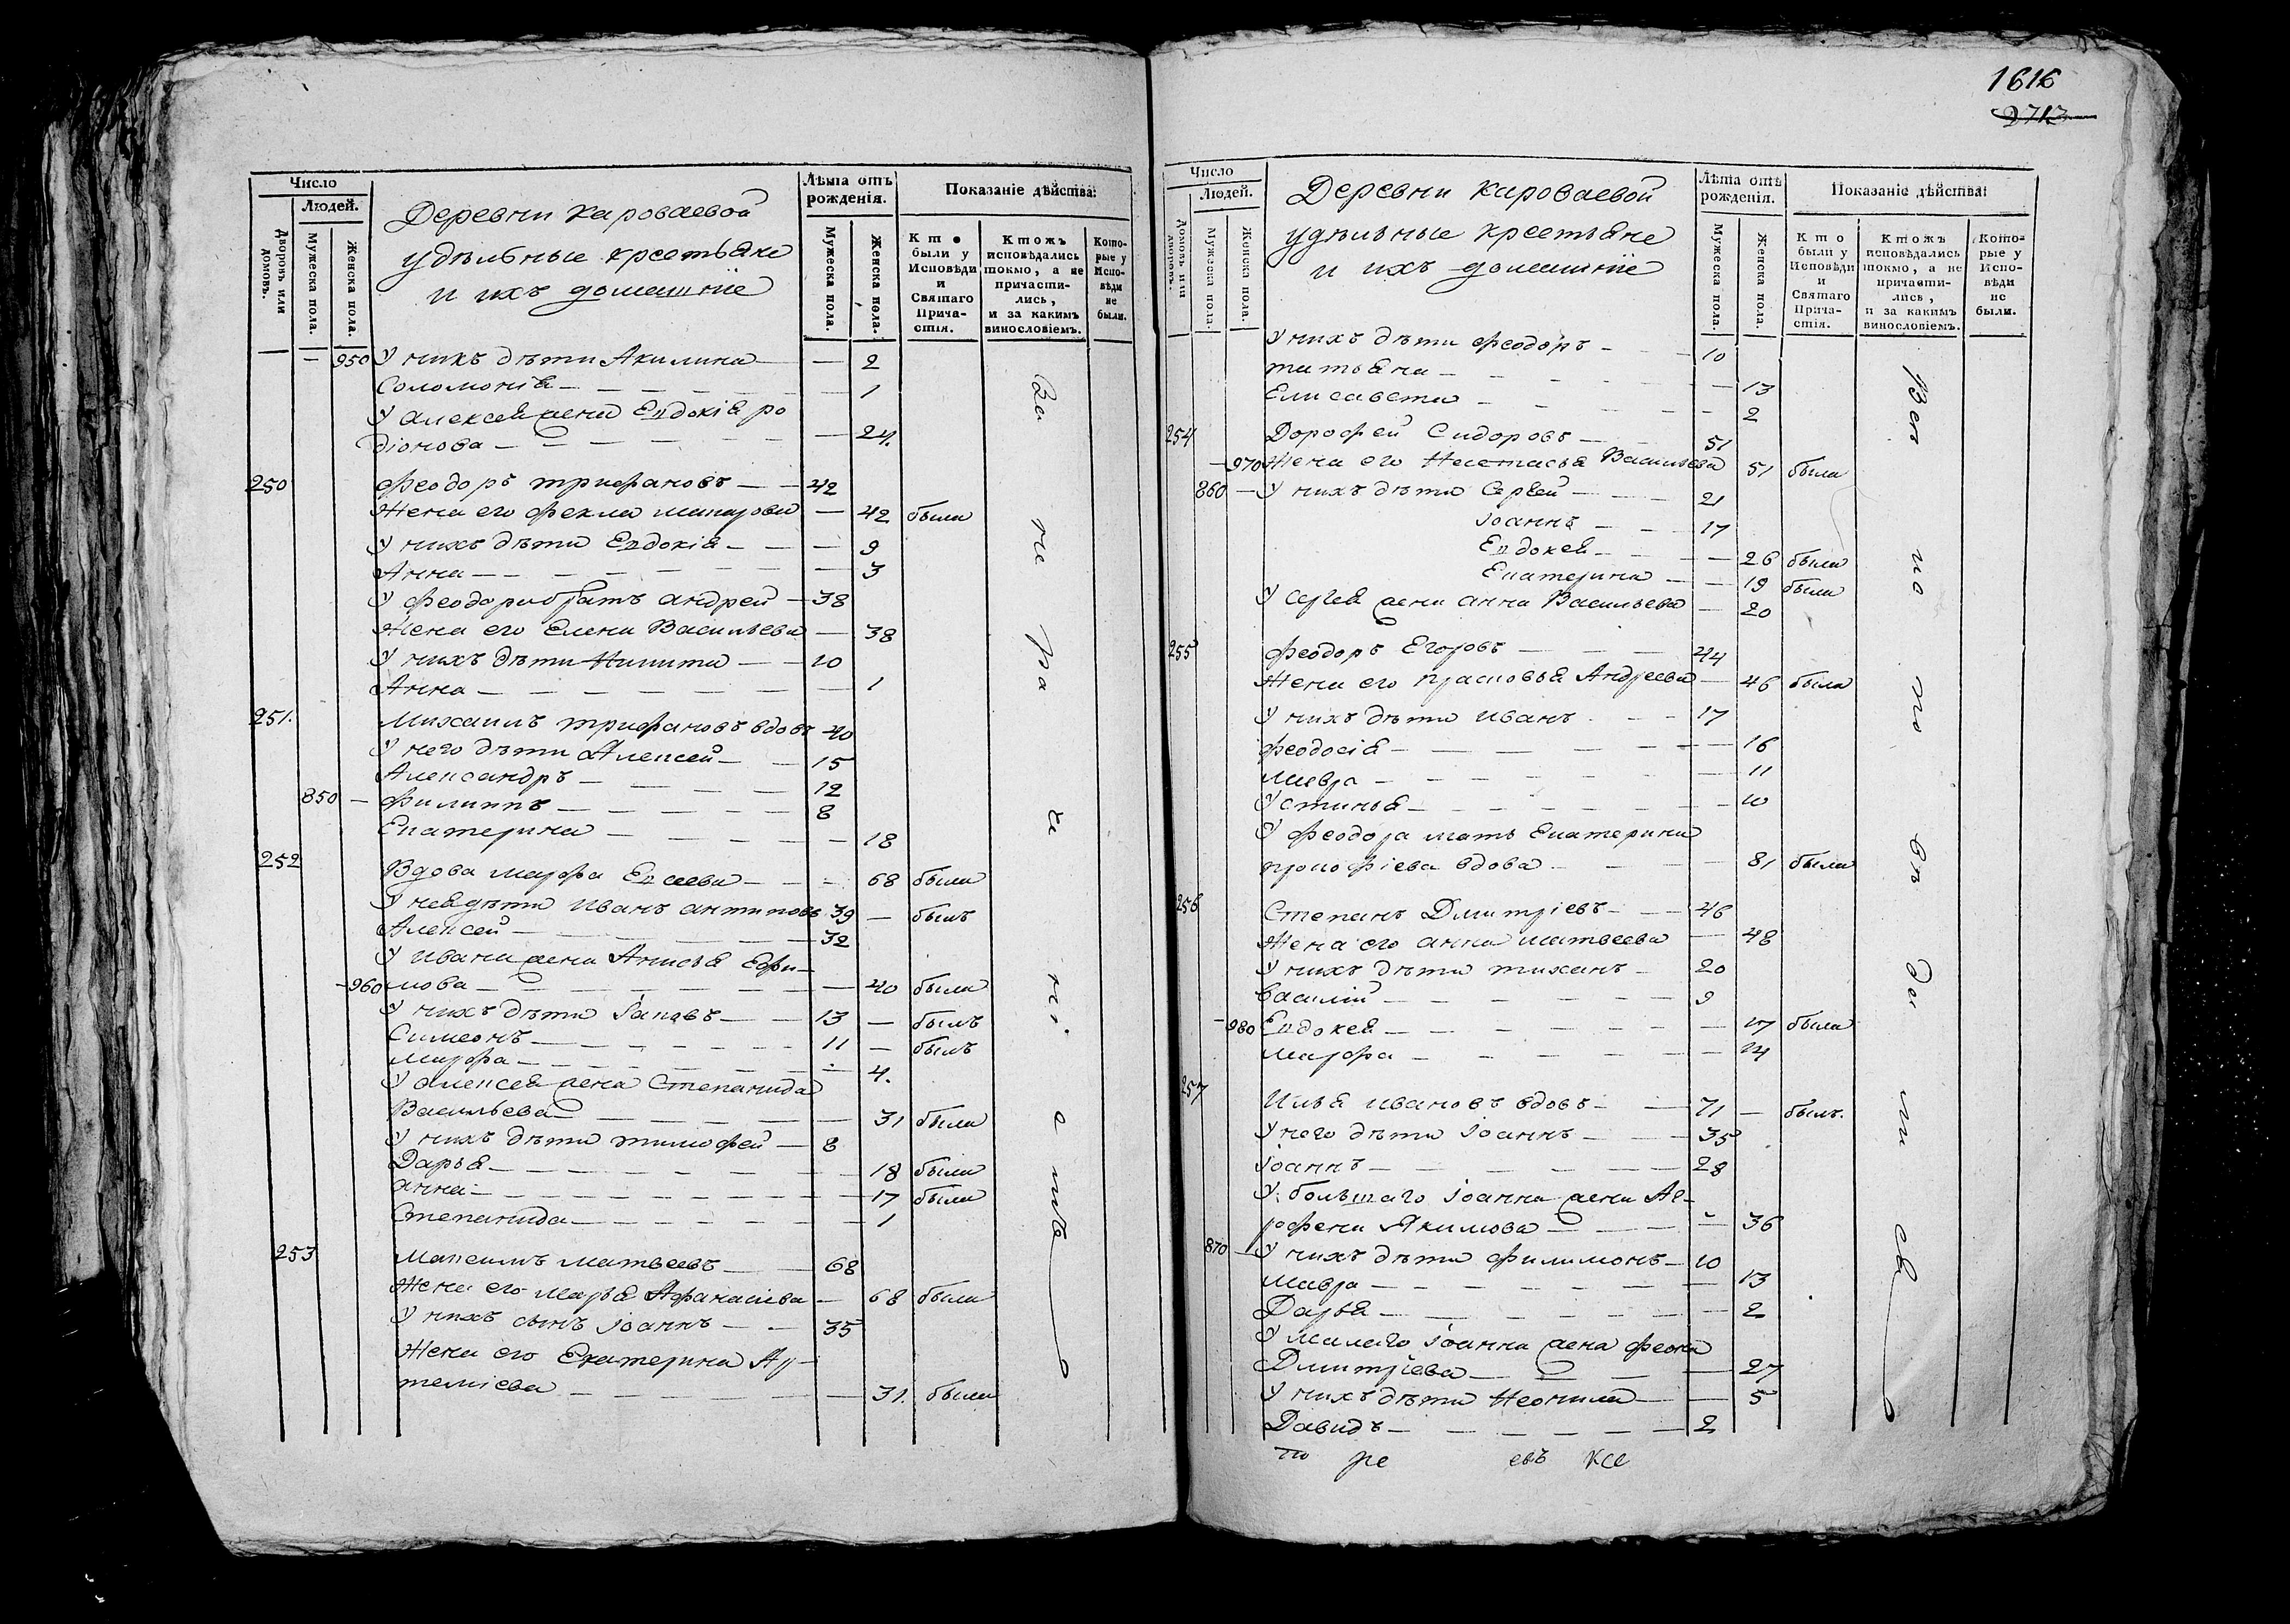 1616
2712
Число
Людей.
Дворовъ или домовъ.
Мужеска пола.
Женска пола.
Деревни Кароваевой
удѣльные крестьяне
и ихъ домашніе
Лѣта отъ рожденія.
Мужеска пола.
Женска пола.
Показаніе дѣйства:
Кто были у Исповѣди и Святаго Причастія.
Ктожъ исповѣдались токмо, а не причастились, и за какимъ винословіемъ.
Которые у Исповѣди не были.
— 950 У нихъ дѣти Акилина — — 2
Соломонія — — 1
У Алексея жена Евдокія Ро
діонова — — 24.
250 Феодоръ Трифановъ — — 42
Жена его Фекла Макарова — 42 была
У нихъ дѣти Евдокія — — — 9
Анна — — 3
У Феодора братъ Андрей — 38
Жена его Елена Васильева — 38
У нихъ дѣти Никита — — 10
Анна — — 1
251. Михаилъ Трифановъ вдовъ 40
У него дѣти Алексей — — 15
Александръ — — 12
850 — Филиппъ — — 8
Екатерина — — 18
252 Вдова Марфа Евсеева — — 68 была
У нея дѣти Иванъ Антиповъ 39 — былъ
Алексей — — 32
У Ивана жена Анисья Ефи-
— 960 мова — — 40 была
У нихъ дѣти Іаковъ — — 13 — былъ
Симеонъ — — 11 — былъ
Марфа — — 4.
У Алексея жена Степанида
Васильева — — 31 была
У нихъ дѣти Тимофей — 8
Дарья — — 18 была
Анна — — 17 была
Степанида — — 1
253 Максимъ Матвеевъ — — 68
Жена его Марья Афанасіева — 68 была
У нихъ сынъ Іоаннъ — — 35
Жена его Екатерина Ар-
теміева — — 31. была
За не ра че ні е мъ
Число
Людей.
Мужеска пола.
Женска пола.
Деревни Кароваевой
удѣльные крестьяне
и ихъ домашніе
Лѣта отъ рожденія.
Мужеска пола.
Женска пола.
Показаніе дѣйства:
Кто были у Исповѣди и Святаго Причастія.
Ктожъ исповѣдались токмо, а не причастились, и за какимъ винословіемъ.
Которые у Исповѣди не были.
У нихъ дѣти Феодоръ — — 10
Татьяна — — 13
Елисавета — — 2
254 Дорофей Сидоровъ — 51
— 970 Жена его Настасья Васильева 51 была
860 — У нихъ дѣти Сергей — — 21
Іоаннъ — — 17
Евдокея — — 26 была
Екатерина — — 19 была
У Сергея жена Анна Васильева — 20
255 Феодоръ Егоровъ — — 44
Жена его Прасковья Андреева — 46 была
У нихъ дѣти Иванъ — — 17
Феодосія — — 16
Мавра — — 11
Устинья — — 10
У Феодора мать Екатерина
Прокофіева вдова — — 81 была
256 Степанъ Дмитріевъ — — 46
Жена его Анна Матвеева — 48
У нихъ дѣти Тиханъ — 20
Василій — — 9
— 980 Евдокея — — 17 была
Марфа — — 14
257 Илья Ивановъ вдовъ — — 71 — былъ.
У него дѣти Іоаннъ — — 35
Іоаннъ — — 28
У большаго Іоанна жена Аг-
рофена Якимова — — 36
870 — У нихъ дѣти Филимонъ — 10
Мавра — — 13
Дарья — — 2
У малаго Іоанна жена Фекла
Дмитріева — — 27
У нихъ дѣти Неонила — — 5
Давидъ — — 2
ре евъ